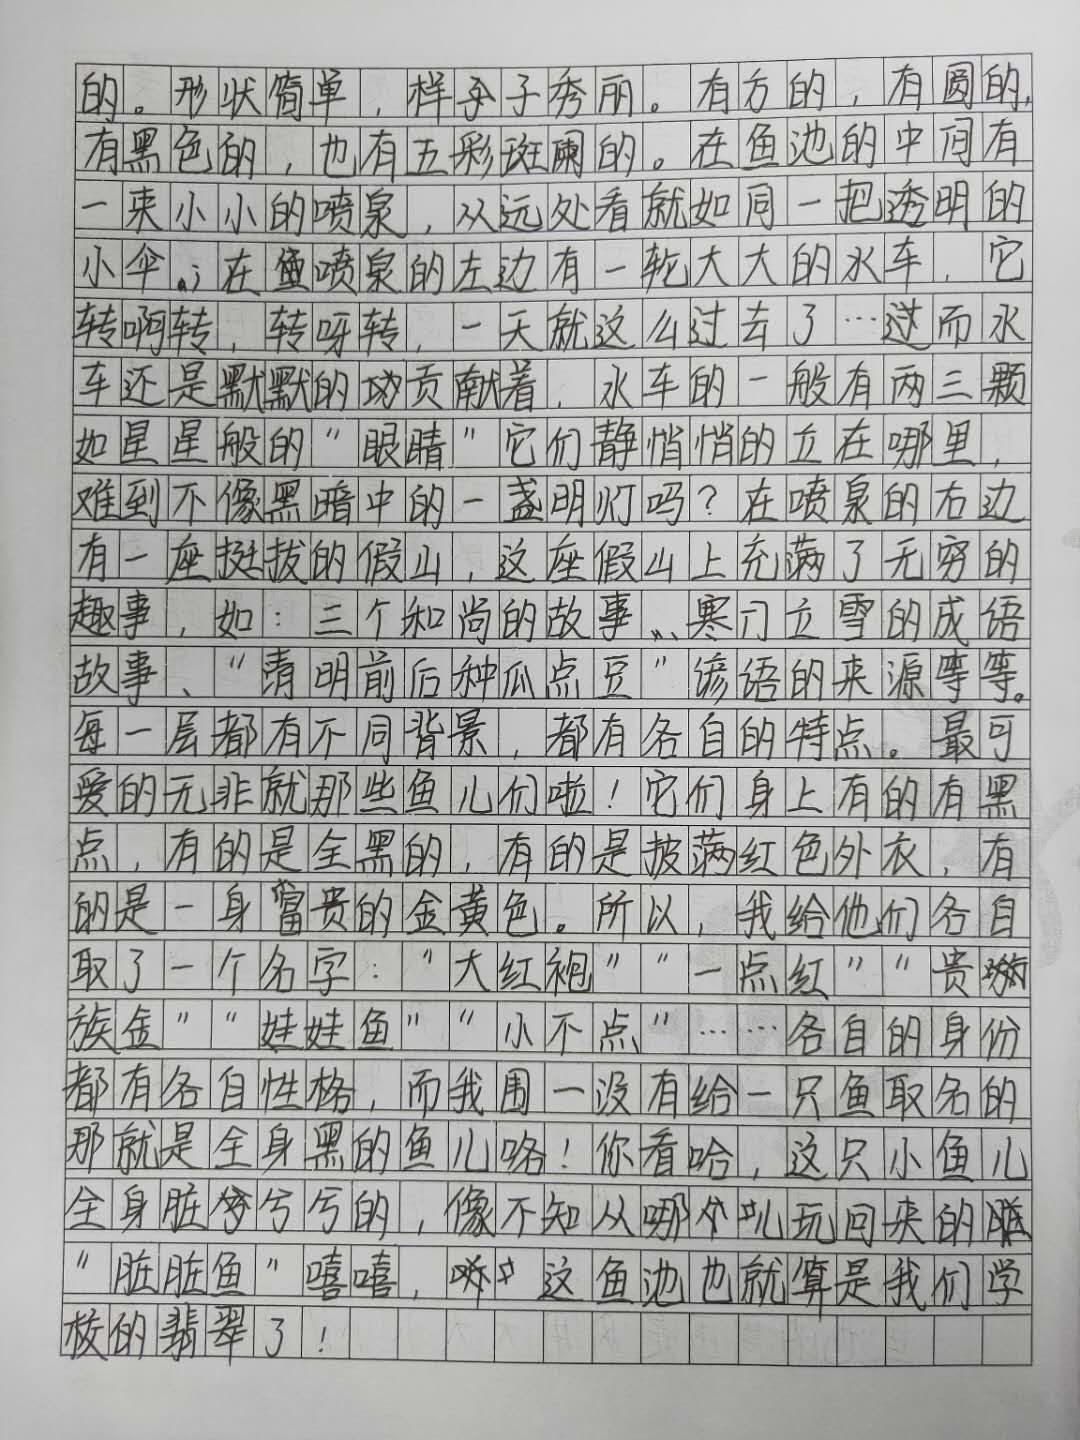 的。形状简单，样子秀丽。有方的，有圆的，
有黑色的，也有五彩斑斓的。在鱼池的中间有
一来小小的喷泉，从远处看就如同一把透明的
小伞，在喷泉的左边有一轮大大的水车，它
转啊转，转呀转，一天就这么过去了…而水
车还是默默的贡献着，水车的一般有两三颗
如星星般的“眼睛”它们静悄悄的立在哪里，
难到不像黑暗中的一盏明灯吗？在喷泉的右边
有一座挺拔的假山，这座假山上充满了无穷的
趣事，如：三个和尚的故事、寒刁立雪的成语
故事、“清明前后种瓜点豆”谚语的来源等等。
每一层都有不同背景，都有各自的特点。最可
爱的无非就那些鱼儿们啦！它们身上有的有黑
点，有的是全黑的，有的是披满红色外衣，有
的是一身富贵的金黄色。所以，我给他们各自
取了一个名字：“大红袍”“一点红”“贵
族金”“娃娃鱼”“小不点”……各自的身份
都有各自性格，而我围一没有给一只鱼取名的
那就是全身黑的鱼儿咯！你看哈，这只小鱼儿
全身脏兮兮的，像不知从哪儿玩回来的
“脏脏鱼”嘻嘻，这鱼池也就算是我们学
校的翡翠了！